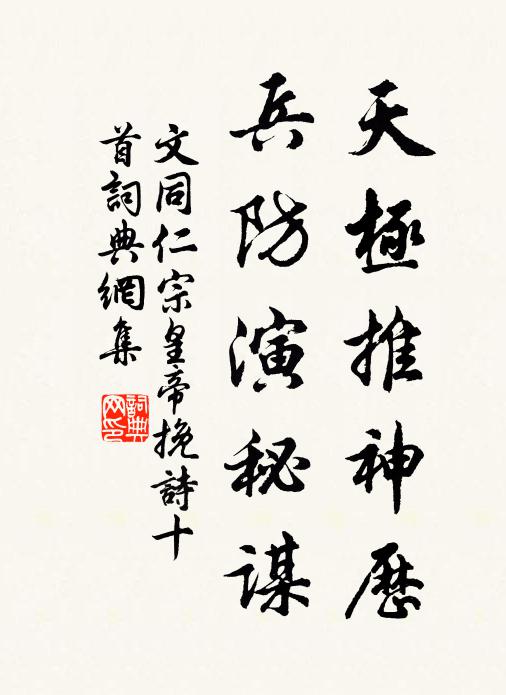 天極推神歷
兵防演秘謀
文同仁宗皇帝挽詩十
首詞典網集
詞典网印